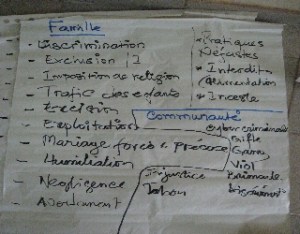 Famille
- Discrimination
- Excursion
- Imposition de religion
- Trafic des enfants
- Excision
- Exploitation
- Mariage forcé & précoce
- Humiliation
- Negligence
Pratiques
Néfastes
* Interdits
alimentation
* Inceste
Communauté
cyber criminalité
Viol
Injustice
Tabou